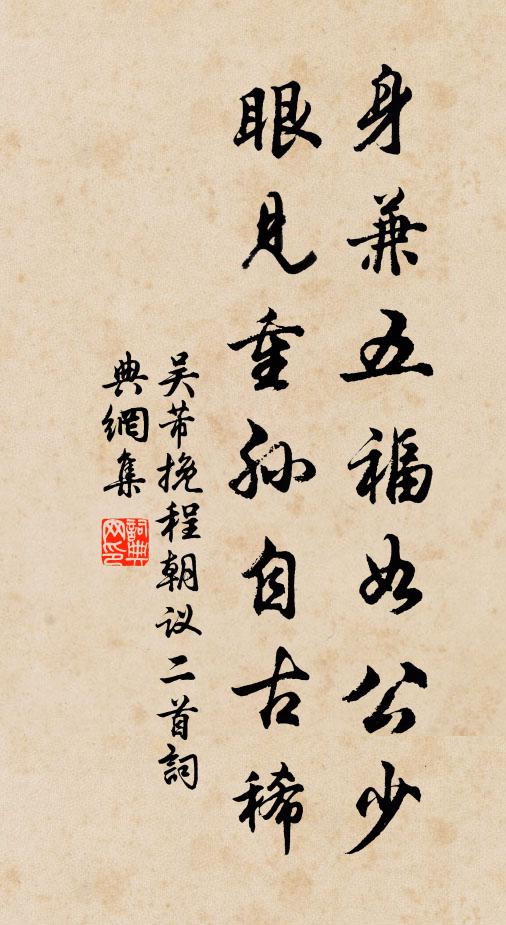 身兼五福如公少
眼見重孙自古稀
吴芾挽程朝议二首詞
典網集
詞典网印